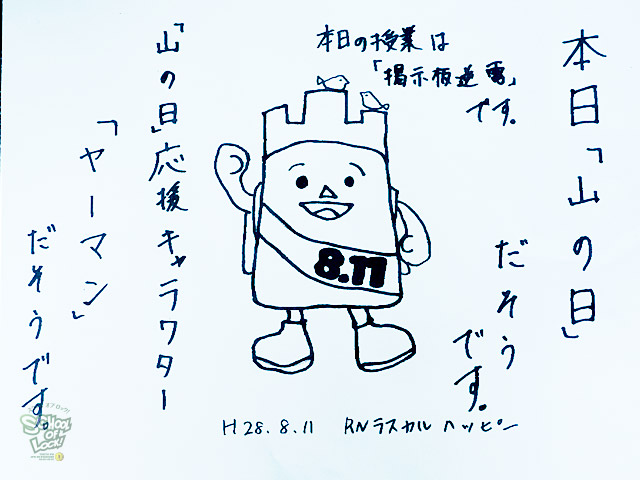 本日「山の日」
だそう
です。
本日の授業は
「掲示板逆電」
です。
8.11
「山の日」応援キャラクター
「ヤーマン」
だそうです。
H28.8.11 RNラスカルハッピー
SCHOOL
OF
LOCK!